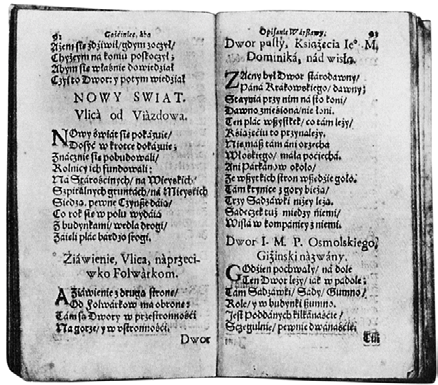 92
Gościniec, ábo
Ażem się zdziwił/ gdym zoczył/
Chyżeym ná koniu poskoczył;
Abym się właśnie dowiedział
Czyi to Dwor: y potym wiedział
NOWY SWIAT.
Vlicá od Viázdowá.
NOwy świát się pokázuie/
Dosyć w krotce dokázuie;
Znácznie się pobudowáli/
Rolnicy ich fundowáli:
Ná Stárościnych/ ná Mieyskich/
Szpitálnych gruntách/ ná Mieyskich
Siedzą, pewne Czynsze dáią
Co rok się w polu wydáią
Z budynkámi/ wedla drogi/
Záięli plác bárdzo srogi.
Ziáwienie, Vlicá, náprzeci-
wko Folwárkom.
A Ziáwienie z drugą stronę/
Od Folwárkow má obronę:
Tám są Dwory w przestronności
Ná gorze/ y w ostronności.
Dwor
Opisánie Wárszáwy.
93
Dwor pusty, Książęciá Ie° M.
Dominiká, nád wisłą.
ZAcny był Dwor stárodawny/
Páná Krákowskiego/ dawny;
Stáynia przy nim ná sto koni/
Dawno zniesiona/ nie łoni.
Ten plác wszystek/ co tám leży/
Książęciu to przynależy.
Nie mász tám áni orzechá
Włoskiego/ máła pociechá.
Ani Párkán/ w około/
Ze wszytkich stron wszędzie goło.
Tám krynice z gory bieżą/
Trzy Sadzawki niżey leżą.
Sadeczek tuż miedzy niemi/
Wisłá w kompániey z niemi.
Dwor I. M. P. Osmolskiego,
Giżiński názwány.
GOdzien pochwały/ ná dole
Ten Dwor leży/ iák w pádole:
Tám Sadzawki/ Sády/ Gumno/
Role/ y w budynki szumno.
Jest Poddánych kilkánaście/
Szczegulnie/ pewnie dwánaście.